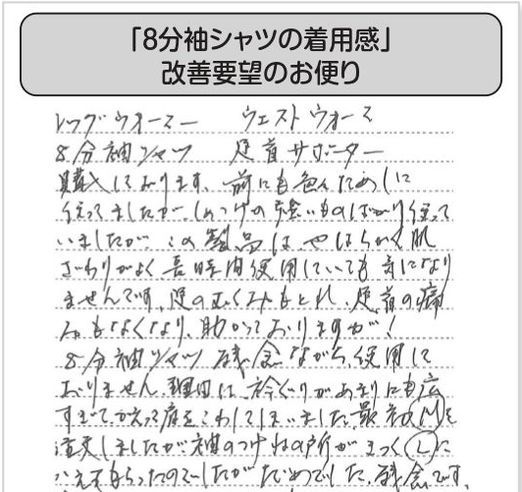 「8分袖シャツの着用感」
改善要望のお便り
レッグウォーマー　ウェストウォーマ
8分袖シャツ　足首サポーター
購入しております。前にも色々ためしに
使ってましたが、しめつけの強いものばかり使って
いましたが この製品は やはらかく肌
ざわりがよく長時間使用していても気になり
ませんです。足のむくみもとれ、足首の痛
みもなくなり、助かっておりますが！
8分袖シャツ 残念ながら、使用して
おりません。理由は、衿ぐりがあまりにも広
すぎて、かえって肩をこわしてしまいました。最初Mを
注文しましたが袖のつけねの所がきつくLに
かえてもらったのでしたがだめでした。残念です。